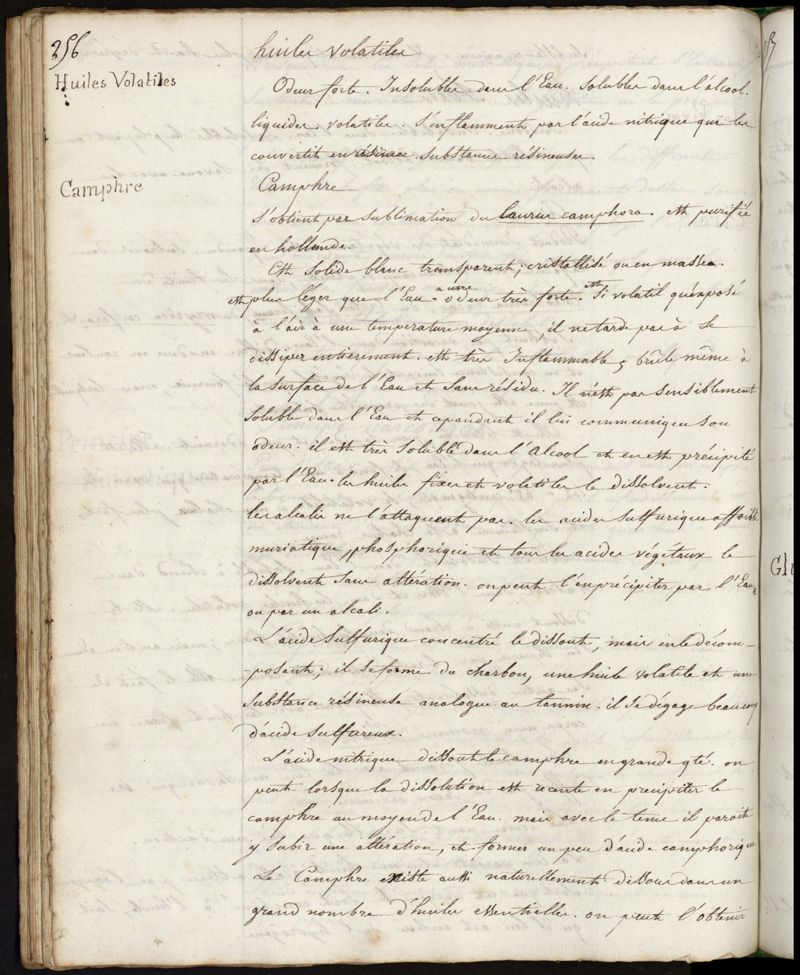 256
huiles volatiles
Huiles Volatiles
Odeur forte. Insolubles dans l'Eau. Solubles dans l'alcool.
liquides. volatiles. S'enflamment par l'acide nitrique qui les
convertit en résine substance résineuse.
Camphre
Camphre
S'obtient par sublimation du laurus camphora. est purifié
en hollande.
Est solide blanc transparent; cristallisé ou en masse.
est plus léger que l'Eau. a une odeur très forte. est Si volatil qu'exposé
à l'air à une temperature moyenne, il ne tarde pas à se
dissiper entierement. est très Inflammable, brûle même à
la surface de l'Eau et sans résidu. Il n'est pas sensiblement
soluble dans l'Eau et cependant il lui communique son
odeur. il est très soluble dans l'alcool et en est précipité
par l'Eau. les huiles fixes et volatiles le dissolvent.
les alcalis ne l'attaquent pas. les acides sulfurique affoibli
muriatique, phosphorique et tous les acides végétaux le
dissolvent sans altération. on peut l'en précipiter par l'Eau,
ou par un alcali.
L'acide sulfurique concentré le dissout, mais en le décom-
-posant; il se forme du charbon, une huile volatile et une
substance résineuse analogue au tannin. il se dégage beaucoup
d'acide sulfureux.
L'acide nitrique dissout le camphre en grande qté. on
peut lorsque la dissolution est recente en precipiter le
camphre au moyen de l'Eau. mais avec le tems il paroit
y subir une altération, et former un peu d'acide camphorique
Le Camphre existe aussi naturellement dissous dans un
grand nombre d'huiles essentielles. on peut l'obtenir